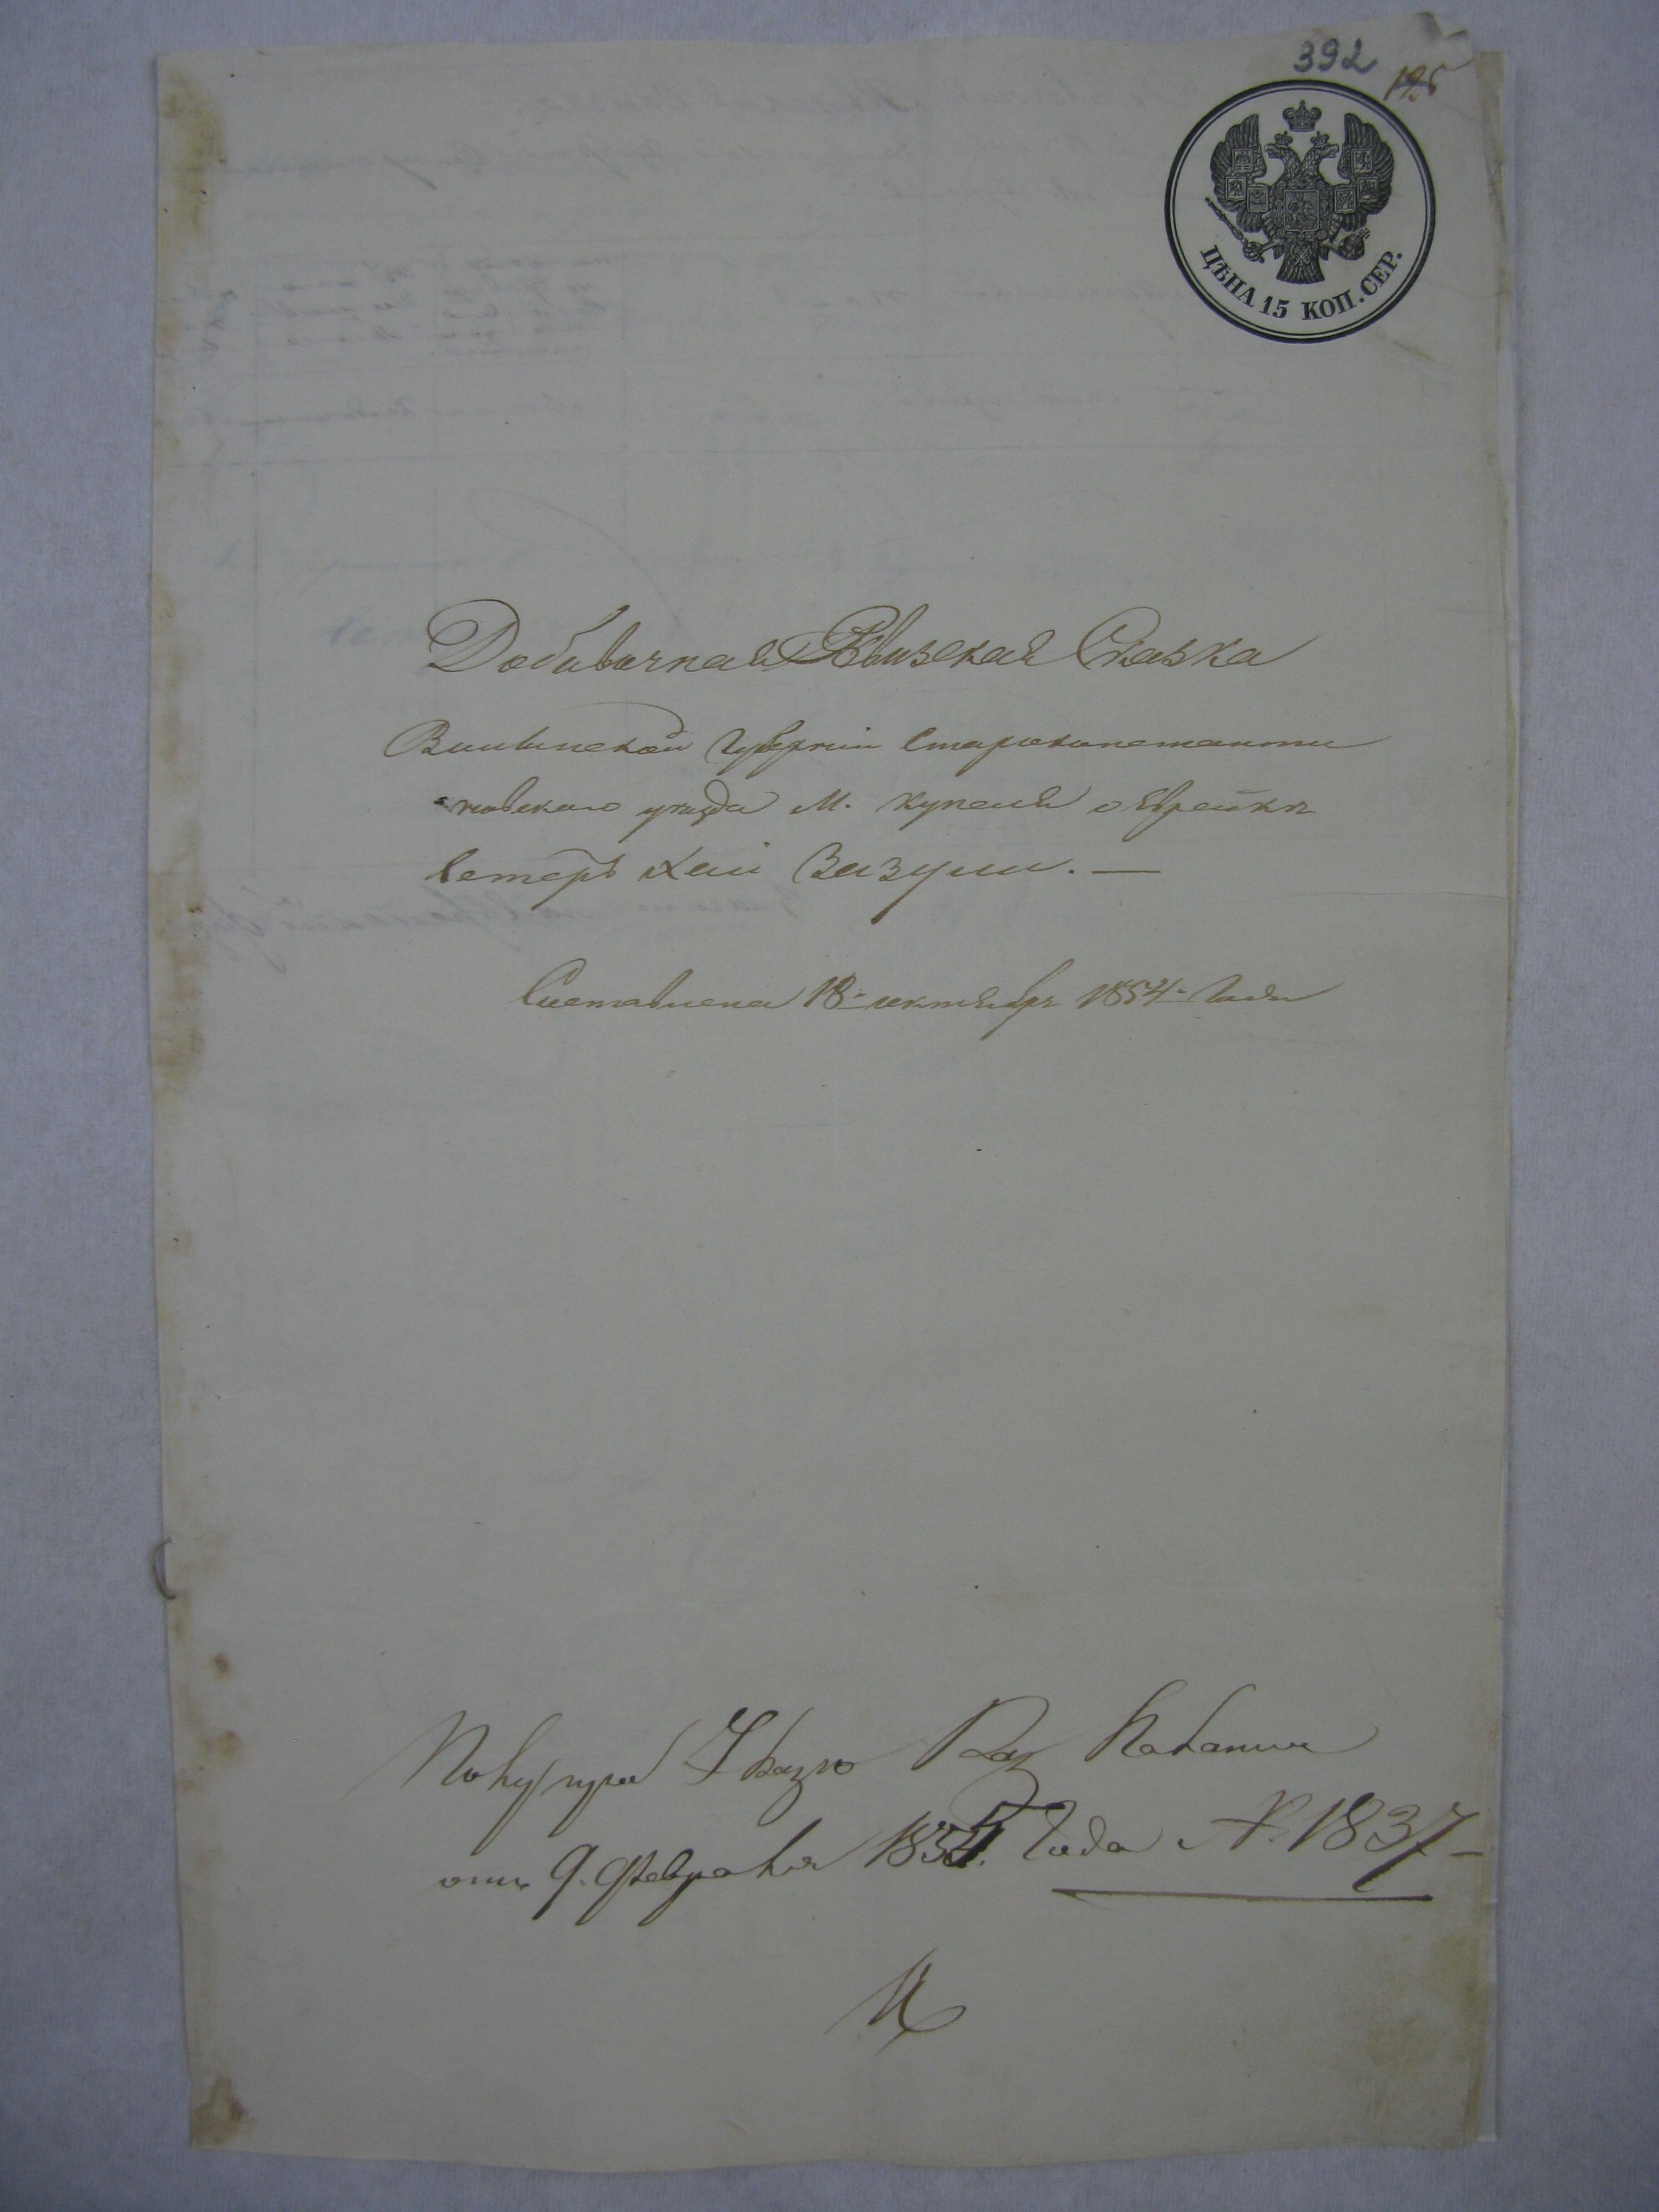 392
125
ЦѢНА 15 КОП. СЕР.
Добавочная Ревизская Сказка
Волынской Губерніи Староконстанти
новскаго уѣзда М. Купеля о Еврейкѣ
Естеръ Хаи Вазули. —
Составлена 18 октября 1854 Года
По Указу Каз Палаты
отъ 9. Февраля 1855. Года № 1837 —